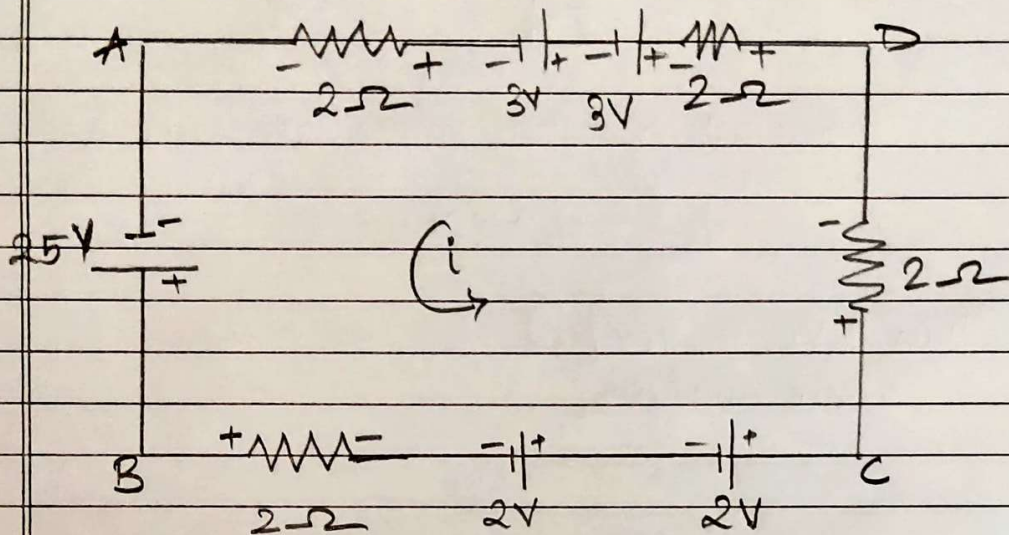 A - + - + - + - + D
2Ω 3V 3V 2Ω
25V - + i - + 2Ω
+ - - + - +
B 2Ω 2V 2V C